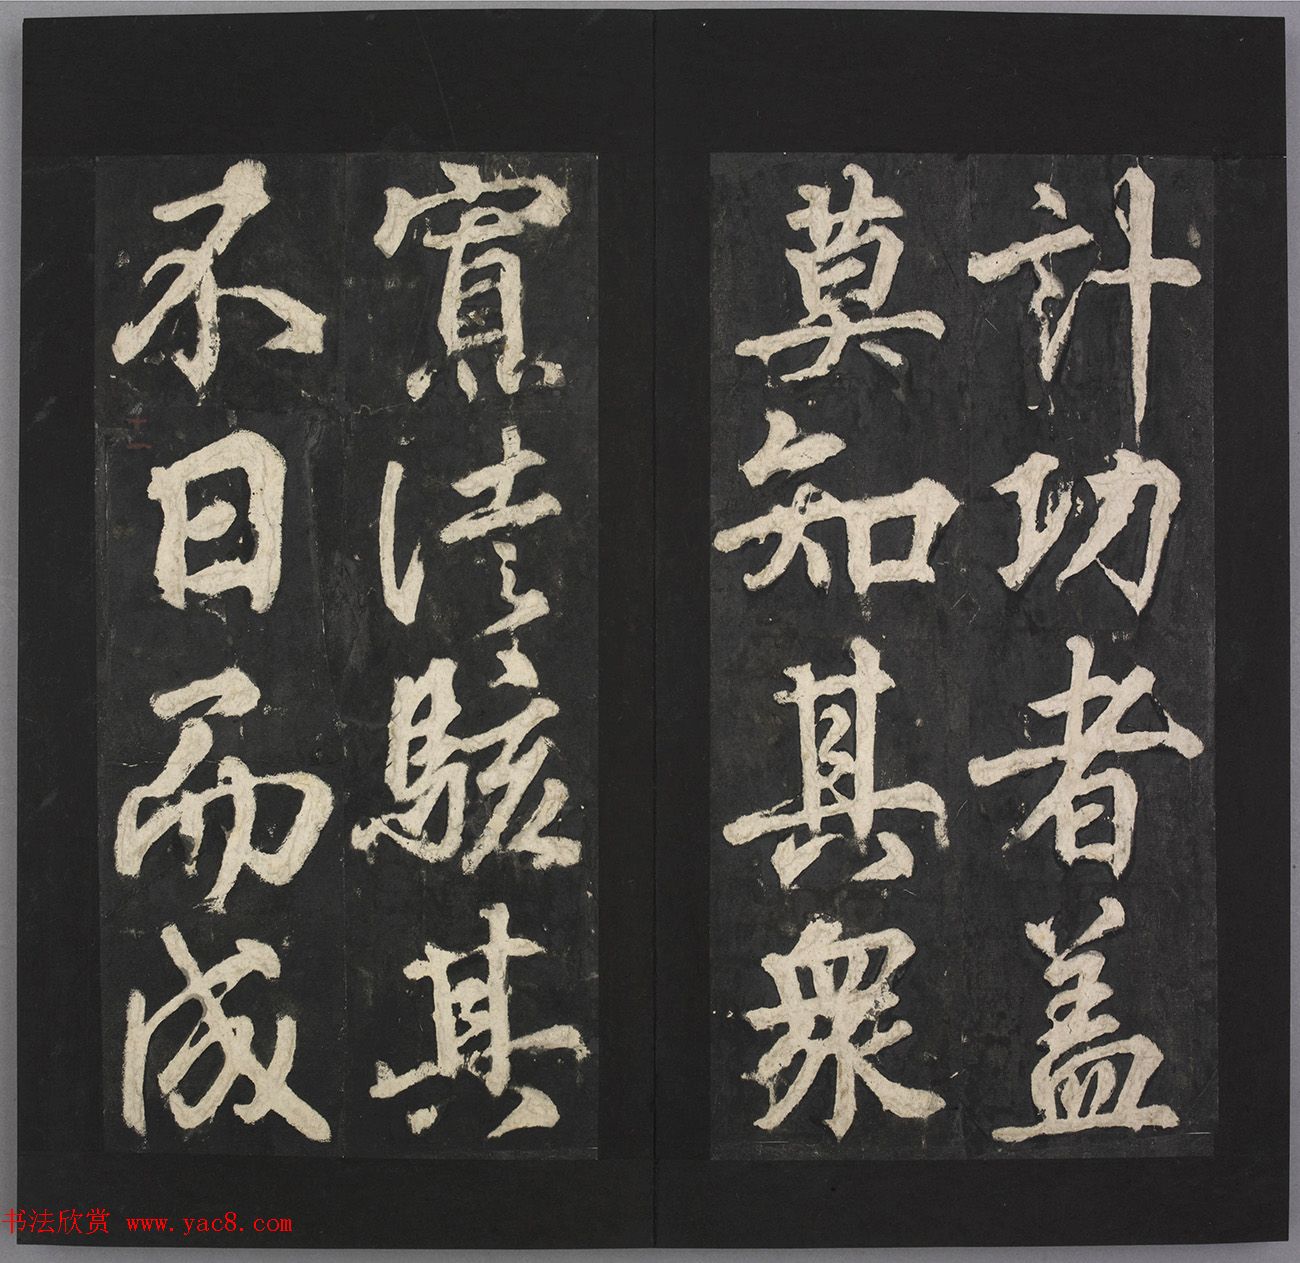 計功者蓋
莫知其衆
實徒駭其
不日而成
书法欣赏 www.yac8.com